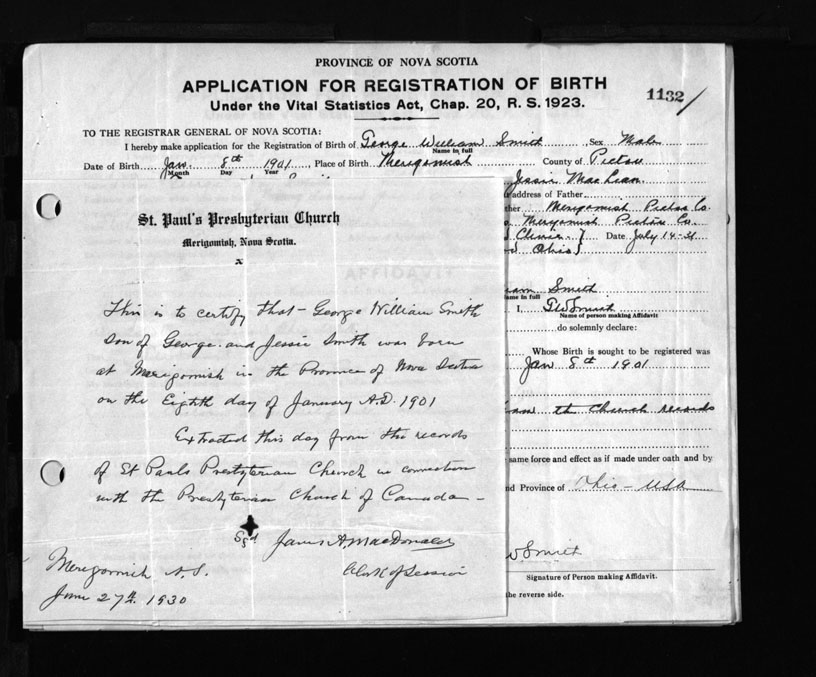 PROVINCE OF NOVA SCOTIA
APPLICATION FOR REGISTRATION OF BIRTH
Under the Vital Statistics Act, Chap. 20, R. S. 1923.
1132
TO THE REGISTRAR GENERAL OF NOVA SCOTIA:
I hereby make application for the Registration of Birth of George William Smith, Sex Male
Name in full
Date of Birth Jan. 8th 1901 Place of Birth Merigomish County of Pictou
Month Day Year
Jessie MacLean
address of Father
ther Merigomish Pictou Co.
Merigomish Pictou Co.
Date July 14-31
Ohio
iam Smith
ame in full
I, G W Smith
Name of person making Affidavit
do solemnly declare:
Whose Birth is sought to be registered was
Jan 8th 1901
the Church records
same force and effect as if made under oath and by
nd Province of Ohio - USA
W Smith
Signature of Person making Affidavit.
the reverse side.
St. Paul's Presbyterian Church
Merigomish, Nova Scotia.
x
This is to certify that - George William Smith
son of George and Jessie Smith was born
at Merigomish in the Province of Nova Scotia
on the Eighth day of January A.D. 1901
Extracted this day from the records
of St Pauls Presbyterian Church in connection
with the Presbyterian Church of Canada -
Sgd James A. MacDonald
Clerk of Session
Merigomish N.S.
June 27th 1930